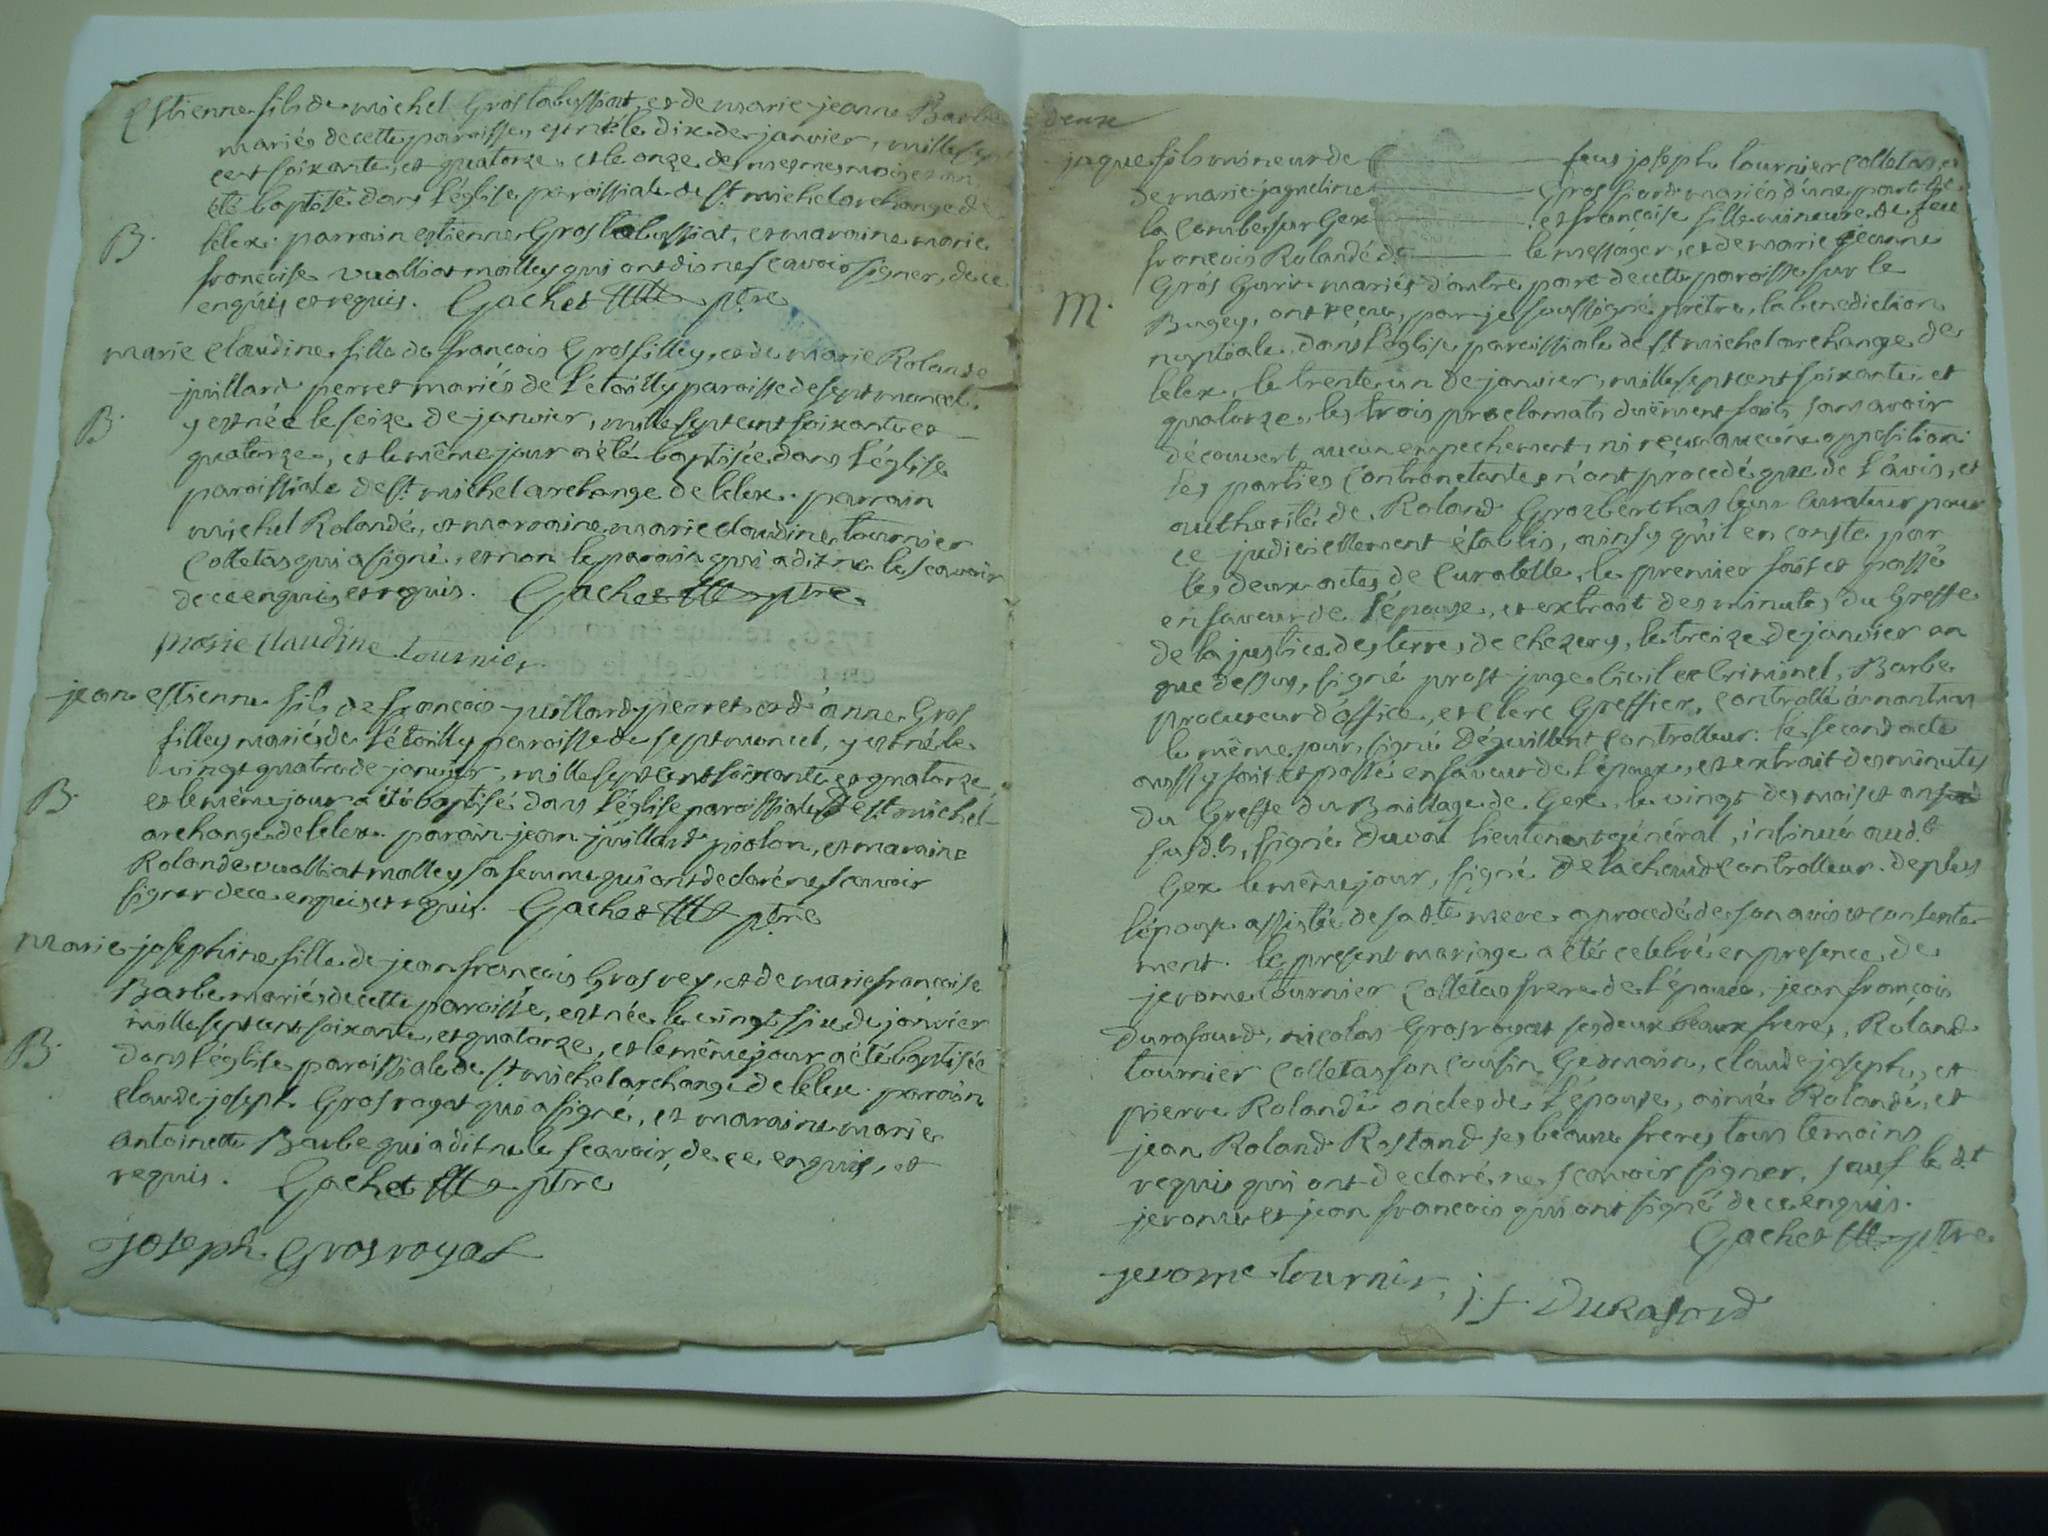 Estienne fils de michel Grostabussiat, et de marie jeanne Barbe
mariés de cette paroisse, est né le dix de janvier, mille sept
cent soixante, et quatorze, et le onze des mesmes mois et an,
été baptisé dans l'église paroissiale de st. michel archange de
B.
lelex: parrain estienne Grostabussiat, et maraine marie
francoise vualliat malley qui ont dis ne scavoir signer, de ce
enquis et requis. Gachet ptre
marie claudine fille de francois Grosfilley, et de marie Rolande
juillard perret mariés de l'étoilly paroisse de septmoncel,
B.
y est née le seize de janvier, mille sept cent soixante et
quatorze, et le même jour a été baptisée dans l'église
paroissiale de st. michel archange de lelex. parrain
michel Rolandé, et marraine marie claudine tournier
Colletas qui a signé, et non le parain qui a dit ne le scavoir
de ce enquis et requis. Gachet ptre
marie claudine tournier
jean estienne fils de francois juillard perret et d'anne Gros
filley mariés de l'étoilly paroisse de septmoncel, y est né le
vingt quatre de janvier, mille sept cent soixante et quatorze,
B.
et le même jour a été baptisé dans l'église paroissiale de st. michel
archange de lelex. parain jean juillard piolon, et maraine
Rolande vualliat malley sa femme qui ont declaré ne scavoir
signer de ce enquis et requis. Gachet ptre
marie josephine fille de jean francois Grosrey, et de marie francoise
Barbe mariés de cette paroisse, est née le vingt six de janvier
mille sept cent soixante, et quatorze, et le même jour a été baptisée
B.
dans l'église paroissiale de st. michel archange de lelex. parrain
claude joseph Grosroyat qui a signé, et maraine marie
antoinette Barbe qui a dit ne le scavoir, de ce enquis, et
requis. Gachet ptre
joseph Grosroyat
deux
jaque fils mineur de feus joseph tournier Colletas, et
de marie jaqueline Grosfiard mariés d'une part de
la Combe sur Gex et francoise fille mineure de feu
francois Rolandé dt. le messager, et de marie jeanne
Gros Gurin mariés d'autre part de cette paroisse sur le
M.
Bugey, ont reçus, par je soussigné prêtre, la benediction
nuptiale dans l'église paroissiale de st. michel archange de
lelex, le trente un de janvier, mille sept cent soixante, et
quatorze, les trois proclamats duëment faits sans avoir
découvert aucun empechement, ni reçu aucune opposition
les parties contractantes n'ont procedé que de l'avis, et
authorité de Roland Grosberthas leur curateur pour
ce judiciellement établis, ainsy qu'il en conste par
les deux actes de Curatelle, le premier fait et passé
en faveur de l'épouse, et extrait des minutes du Greffe
de la justice des terres de chezery, le treize de janvier an
que dessus, signé prost juge Civil et Criminel, Barbe
procureur d'office, et Clerc Greffier, controllé á nantua
le même jour, signé Déguillent controlleur: le second acte
aussy fait et passé en faveur de l'époux, est extrait des minutes
du Greffe du Baillage de Gex, le vingt des mois et an
susds, signé Duval lieutenant général, insinué audt
Gex le même jour, signé Delachaud Controlleur. de plus
l'épouse assistée de sadte mere a procedé de son avis et consente
ment. le present mariage a été celebré en presence de
jerome tournier Colletas frere de l'époux, jean françois
Durafourd, nicolas Grosroyat ses deux beaux freres, Roland
tournier Colletas son Cousin Germain, claude joseph, et
pierre Rolandé oncles de l'épouse, aimé Rolandé, et
jean Roland Rostand ses beaux freres tous temoins
requis qui ont declaré ne scavoir signer, sauf le dt
jerome et jean francois qui ont signé de ce enquis.
Gachet ptre
jerome tournier, j. f. Durafourd